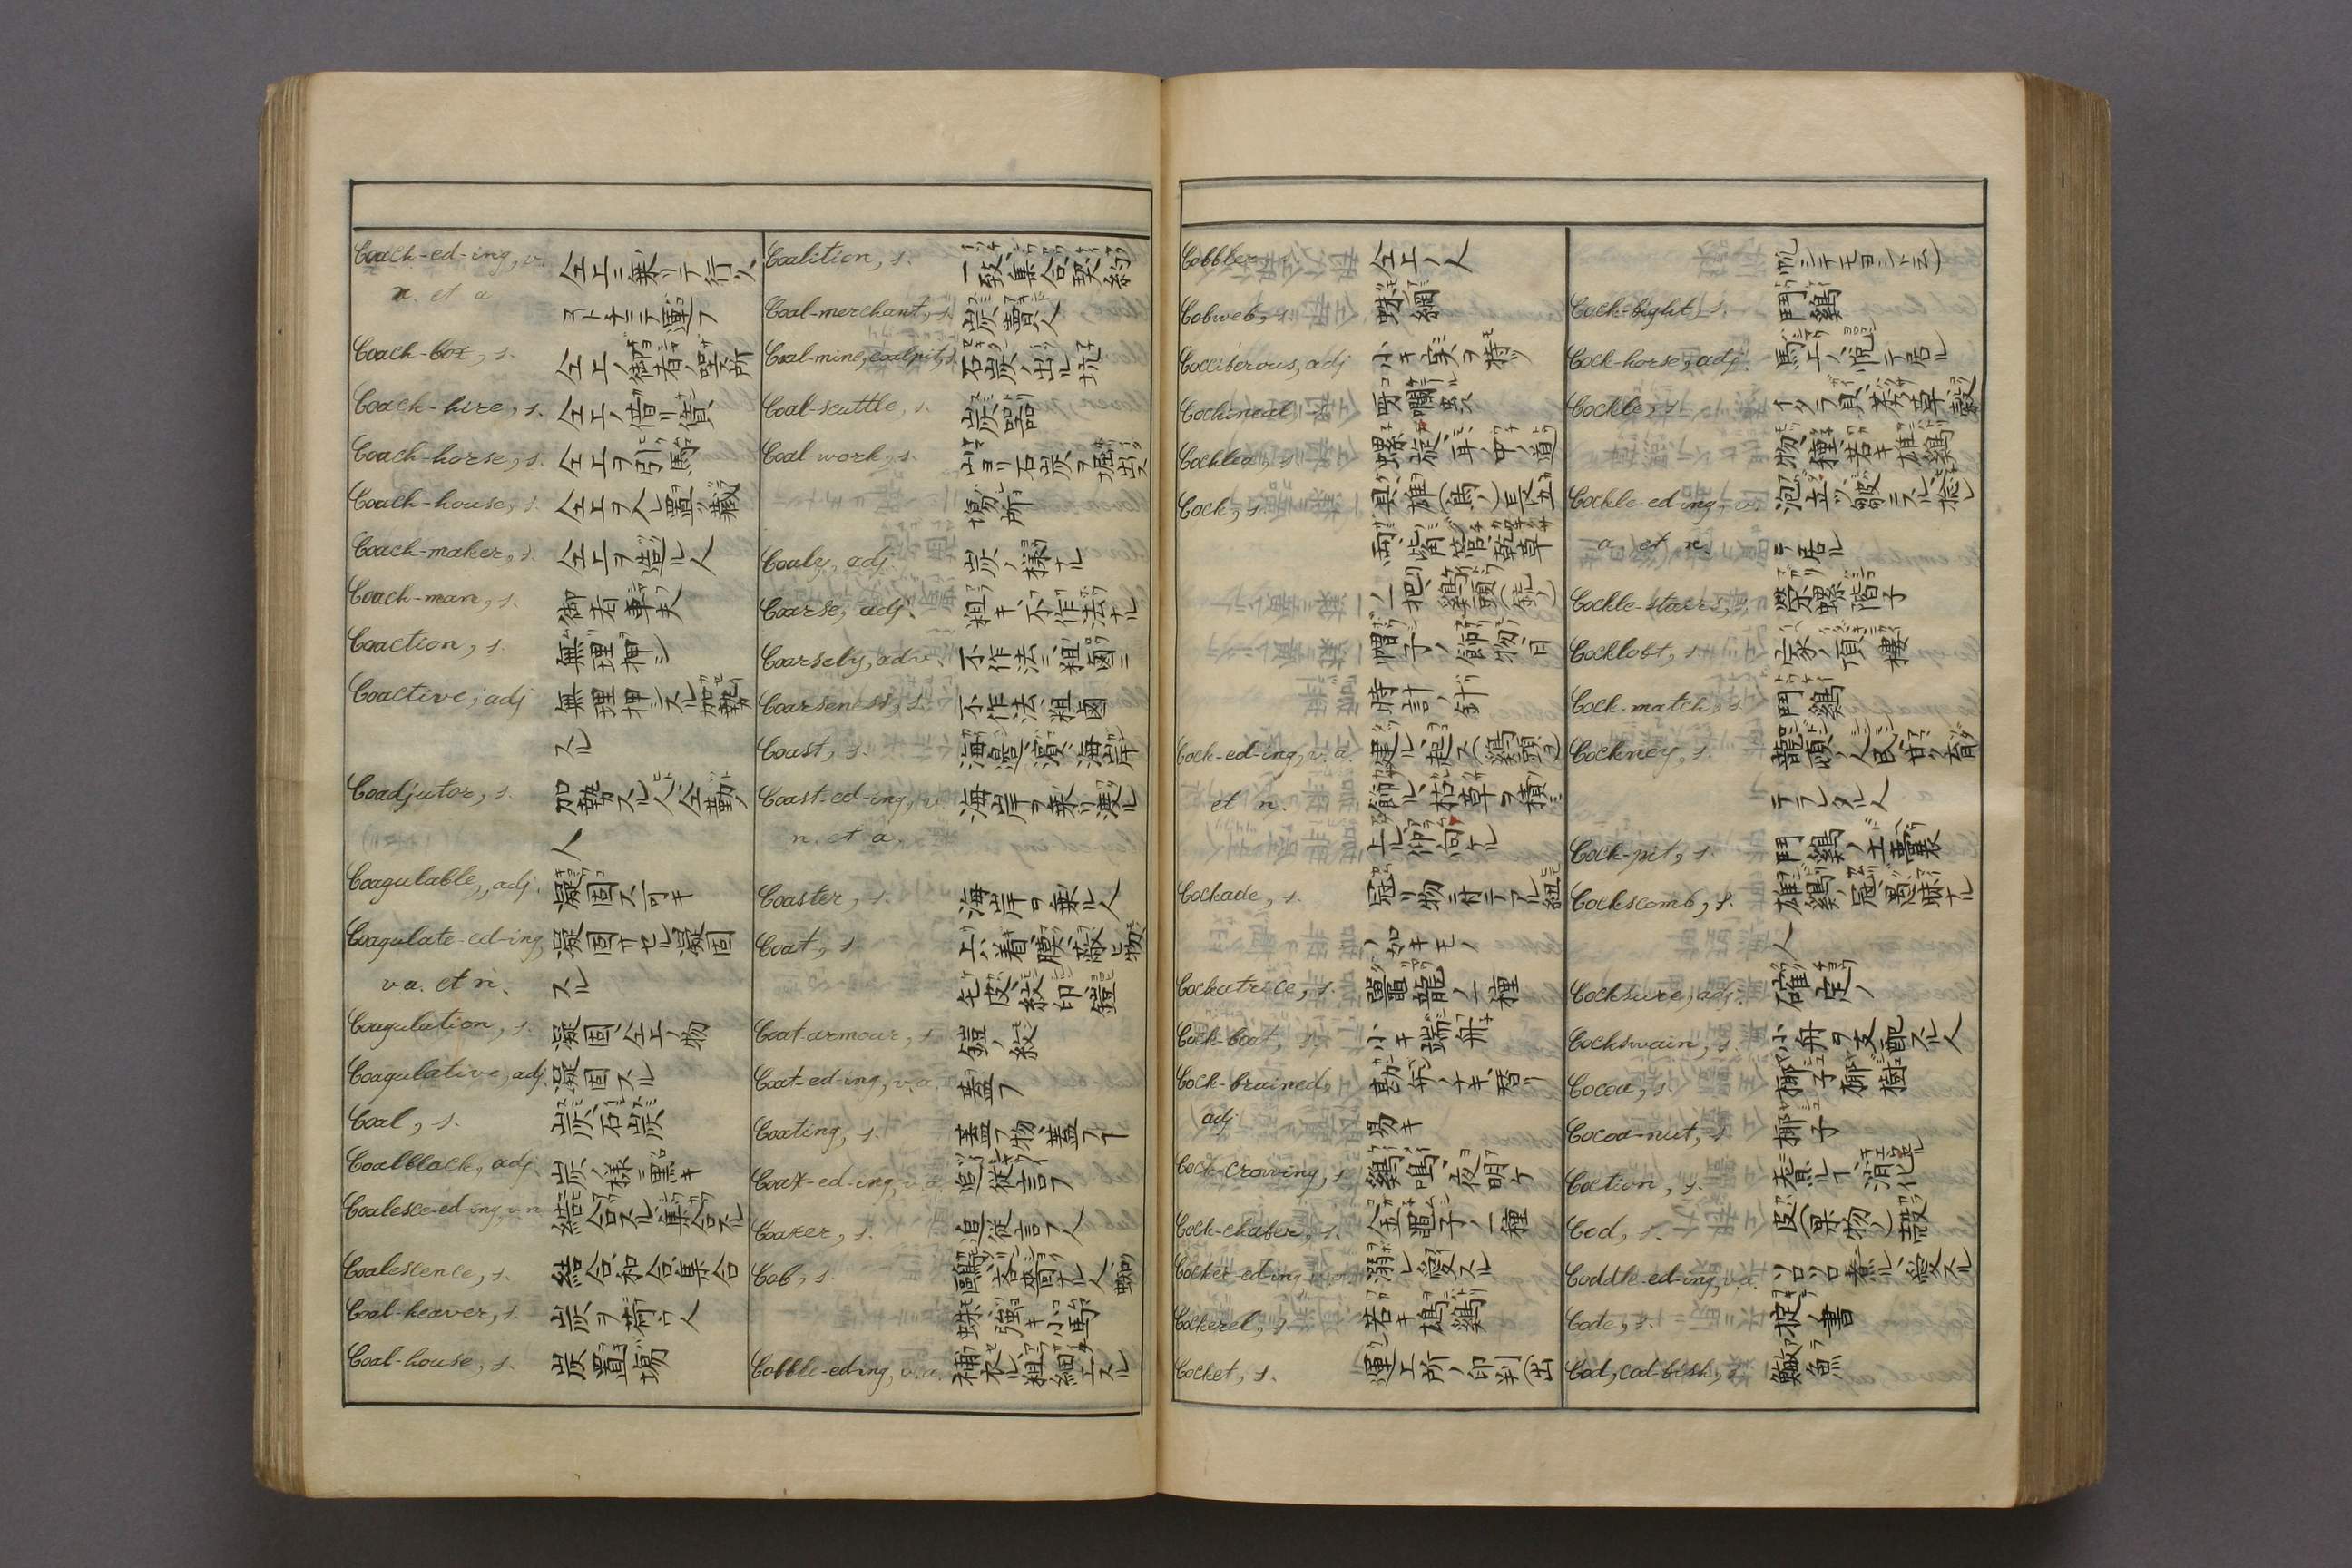 Coach-ed-ing, v. 仝上ニ乗リテ行ク
n. et a ストナニテ運フ
Coach-box, s. 仝上ノ御者ノ坐所
Coach-hire, s. 仝上ノ借リ賃
Coach-horse, s. 仝上ヲ引ク馬
Coach-house, s. 仝上ヲ入レ置ク蔵
Coach-maker, s. 仝上ヲ造ル人
Coach-man, s. 御者、車夫
Coaction, s. 無理押シ
Coactive, adj 無理押シスル、加勢
スル
Coadjutor, s. 加勢スル人、仝勤ノ
人
Coagulable, adj. 凝固ス可キ
Coagulate-ed-ing, 凝固サセル、凝固
va. et n. スル
Coagulation, s. 凝固、仝上ノ物
Coagulative, adj. 凝固スル
Coal, s. 炭、石炭
Coalblack, adj. 炭ノ様ニ黒キ
Coalesce-ed-ing, v.n 結合スル、集合スル
Coalescence, s. 結合、和合、集合
Coal-heaver, s. 炭ヲ荷フ人
Coal-house, s. 炭置場
Coalition, s. 一致、集合、契約
Coal-merchant, s. 炭賣人
Coal-mine, coalpit, s. 石炭ノ出ル坑
Coal-scuttle, s. 炭器
Coal-work, s. 山ヨリ石炭ヲ掘出ス
場所
Coaly, adj. 炭ノ様ナル
Coarse, adj. 粗キ、不作法ナル
Coarsely, adv. 不作法ニ、粗鹵ニ
Coarseness, s. 不作法、粗鹵
Coast, s. 海邉、濱、海岸
Coast-ed-ing, v. 海岸ヲ乗リ渡ル
n. et a.
Coaster, s. 海岸ヲ乗ル人
Coat, s. 上ハ着、膜、蔽ヒ物
毛皮、紋印、鎧
Coat-armour, s. 鎧ノ紋
Coat-ed-ing, v.a. 蓋フ
Coating, s. 蓋フ物、蓋フヿ
Coax-ed-ing, v.a. 追従言フ
Coaxer, s. 追従言フ人
Cob, s. 鷗、吝嗇ナル人、蜘
蛛、強キ小馬
Cobble-ed-ing, v.a. 補ヒル、粗細工スル
Cobbler 仝上ノ人
Cobweb, s. 蛛網
Cocciferous, adj 小キ実ヲ持ツ
Cochineal, s.
Cochlea, s. 螺旋、耳ノ中ノ道
Cock, s. 具、雄(鳥ノ)、長立
一把、鶏頭(銃ノ)
帽子ノ餝物、日
時計ノ針
Cock-ed-ing, v.a. 建ル、起ス(鶏頭ヲ)
et n. 餝ル、枯草ヲ積ミ
上ル、仰向ケル
Cockade, s. 冠リ物ニ付テアル紐
ノ如キモノ
Cockatrice, s. 龍ノ一種
Cock-boat, s. 小キ端舟
Cock-brained, 勘弁ノナキ、
adj 易キ
Cock-crowing, s. 鶏鳴、夜明ケ
Cock-chafer, s. 金亀子ノ一種
Cocker-ed-ing, v.a. 溺レ愛スル
Cockerel, s. 若キ雄鶏
Cocket, s. 運上所ノ印判(出
帆シテモヨシト云)
Cock-fight, s. 鬥鶏
Cock-horse, adj. 馬上ノ、悦テ居ル
Cockle, s. イタラ貝、莠草、穀
物ノ種、若キ雄鶏
Cockle-ed-ing, v. 泡立ツ、皺ニスル、捻レ
a. et n. テ居ル
Cockle-stairs, s. 榮螺階子
Cockloft, s. 家ノ頂樓
Cock-match, s. 鬥鶏
Cockney, s. 龍頓ノ人民、甘ク育
テラレタル人
Cock-pit, s. 鬥鶏ノ土
Cockscomb, s. 雄鶏ノ冠、愚昧ナル
人
Cocksure, adj. 確定ノ
Cockswain, s. 小舟ヲ支配スル人
Cocoa, s. 椰子、椰樹
Cocoa-nut, s. 椰子
Coction, s. 煮ルヿ、消化
Cod, s. 皮(果物ノ)、殻
Coddle-ed-ing, v.a. 沼沼煮ル、愛スル
Code, s. 掟ノ書
Cod, cod-fish, s. 鱈魚